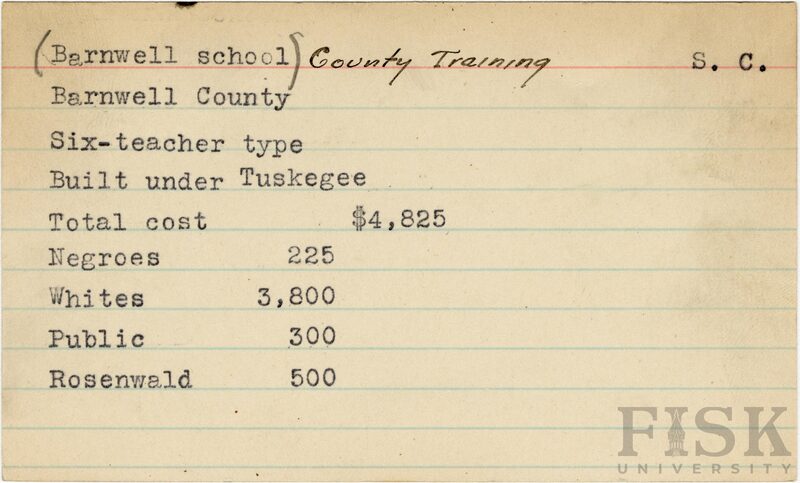 (Barnwell school) County Training S. C.
Barnwell County
Six-teacher type
Built under Tuskegee
Total cost $4,825
Negroes 225
Whites 3,800
Public 300
Rosenwald 500
FISK
UNIVERSITY